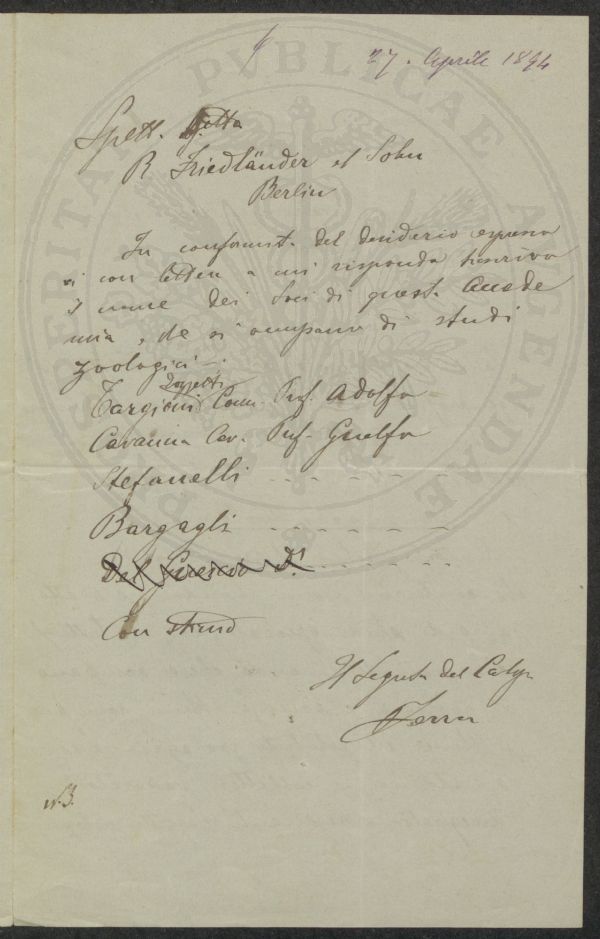 27. Aprile 1894
Spett. Ditta
R Friedländer et Sohn
Berlin
In conformità del desiderio espresso
con lettera a cui rispondo trascrivo
il nome dei Soci di questa Accade
mia, che si occupano di studi
zoologici:
Tozzetti
Targioni Comm. Prof. Adolfo
Cavanna Cav. Prof. Guelfo
Stefanelli - - - - - - -
Bargagli - - - - - - -
Del Guercio Dr. - - - - - -
Con stima
Il Segret. del
N.B.
PROSPERITATI PVBLICAE AVGENDAE